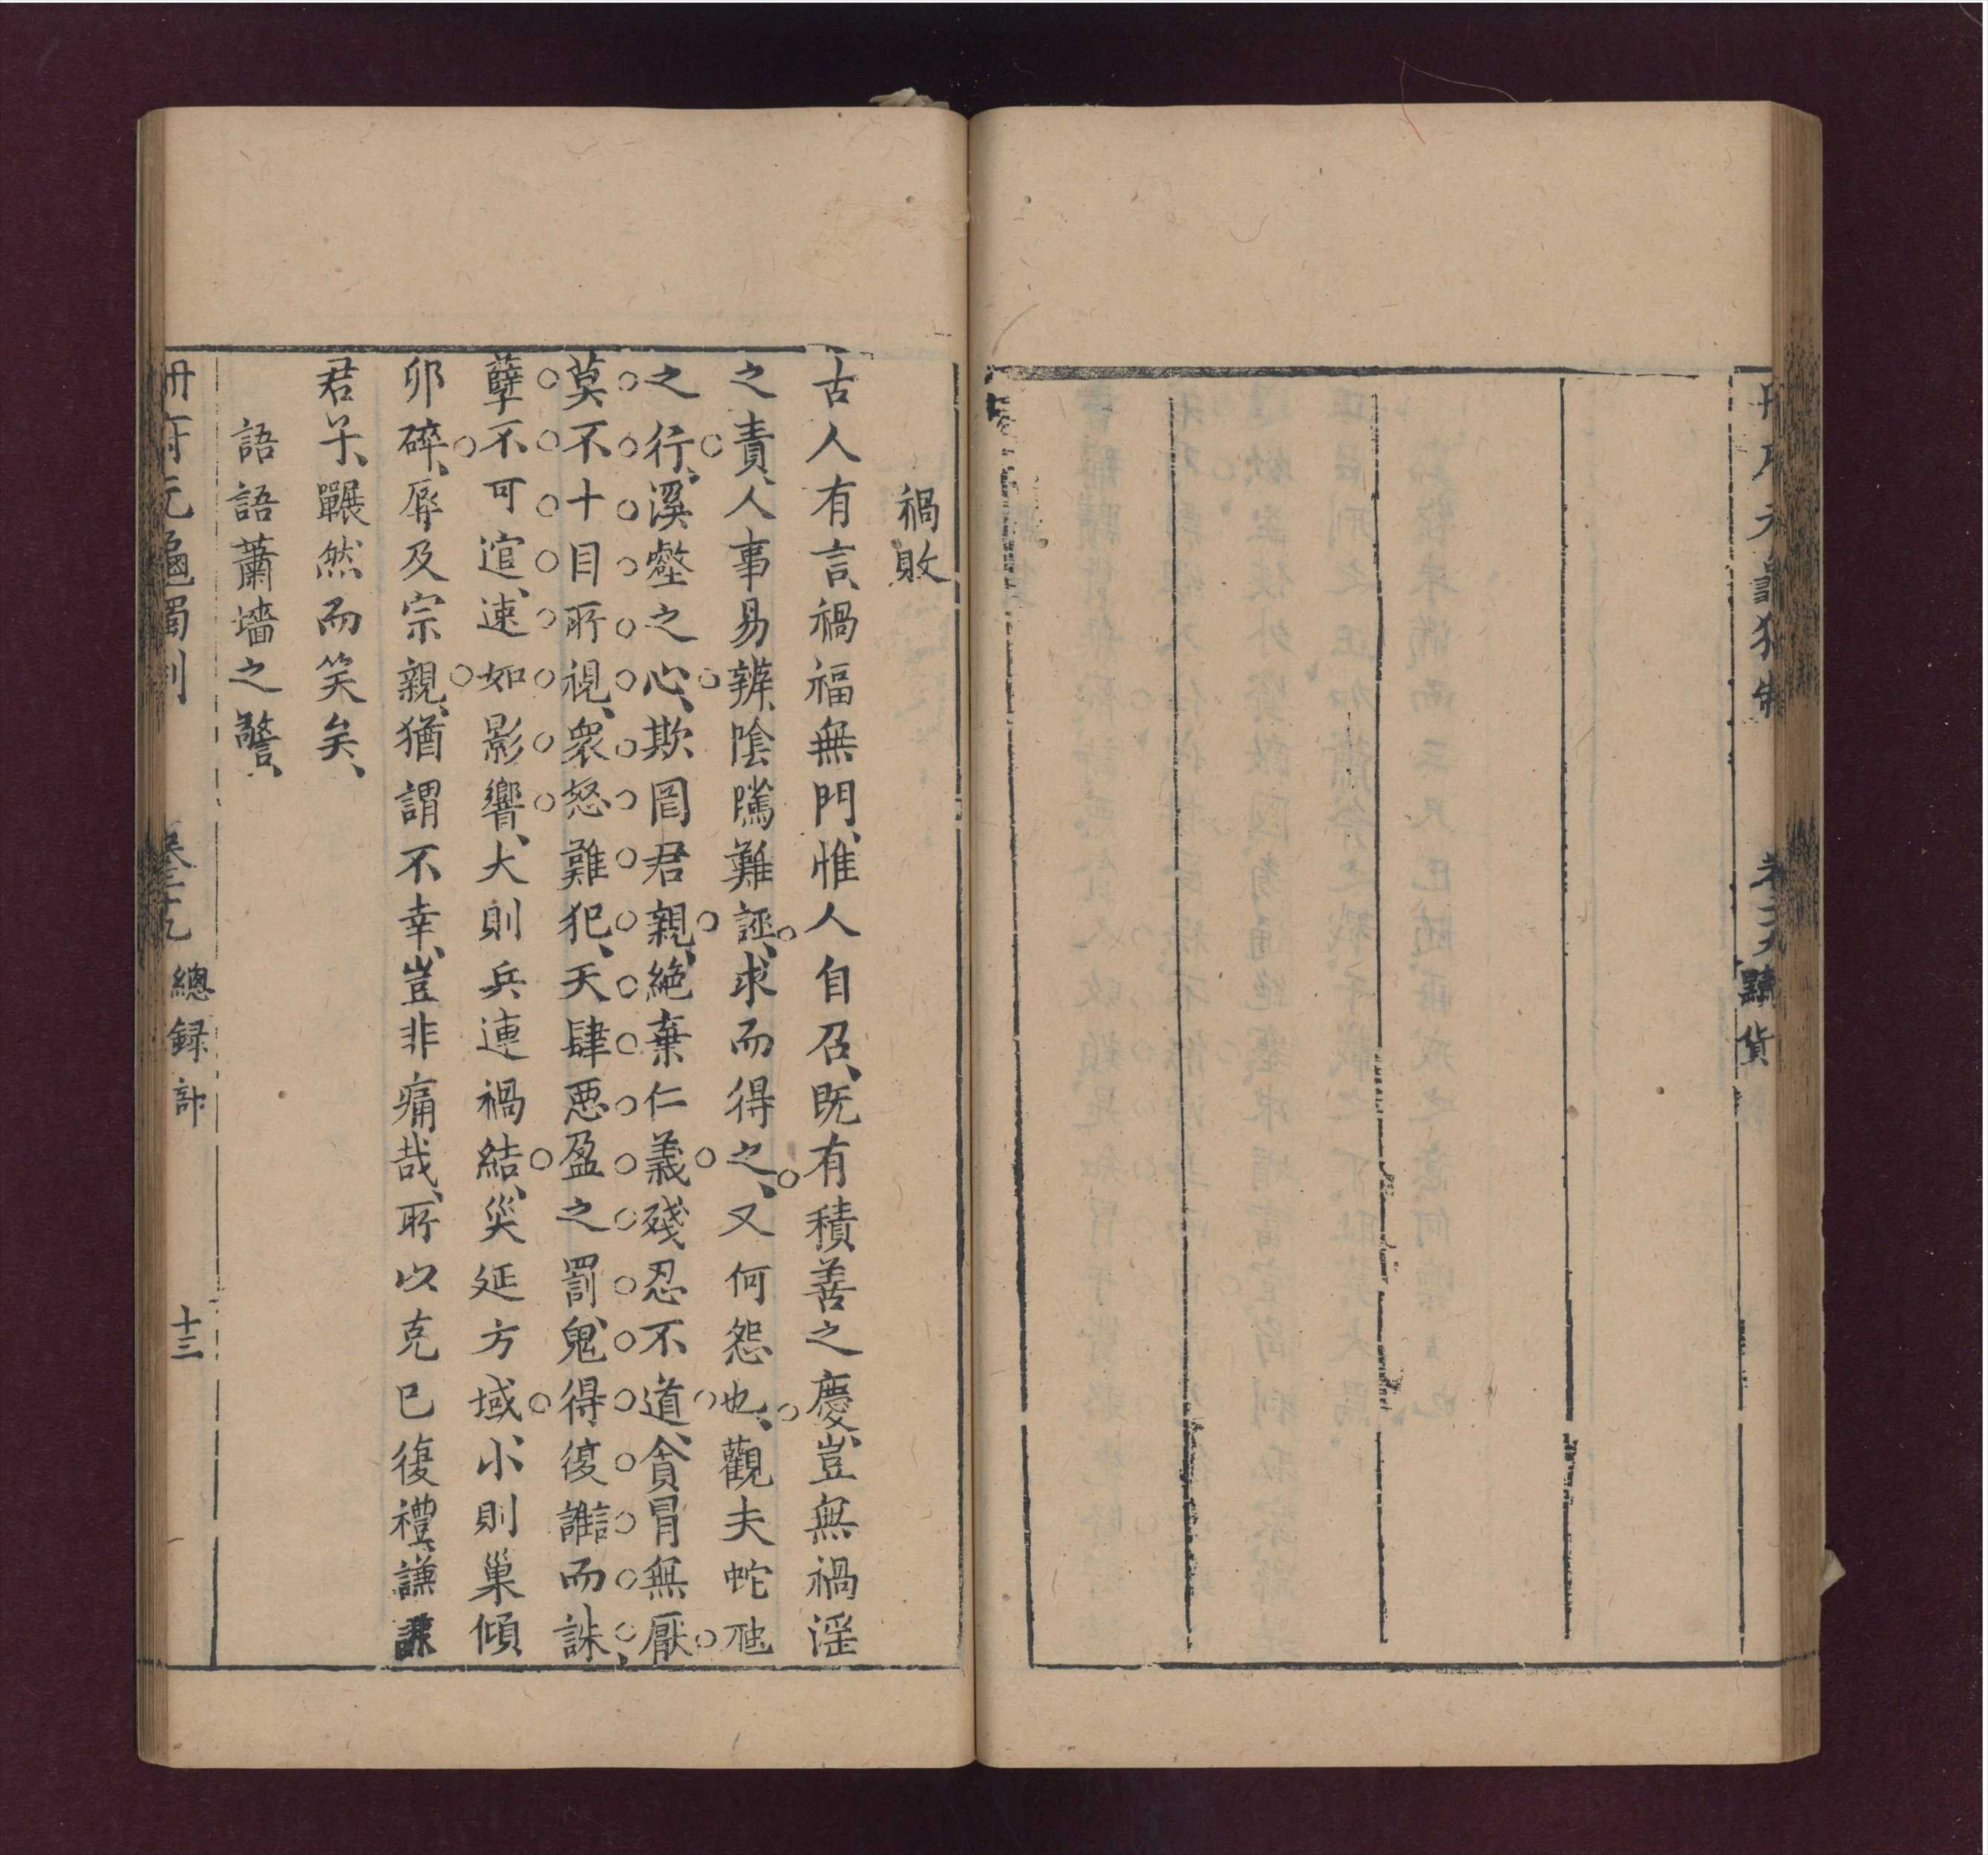 黷貨
禍敗
古人有言、禍福無門、惟人自召、既有積善之慶、豈無禍淫
之責、人事易辨、陰隲難誣、求而得之、又何怨也、觀夫蛇虺
之行、溪壑之心、欺罔君親、絕棄仁義、殘忍不道、貪冒無厭
莫不十目所視、衆怒難犯、天肆惡盈之罰、鬼得復讐而誅、
孽不可逭、速如影響、大則兵連禍結、災延方域、小則巢傾
卵碎、辱及宗親、猶謂不幸、豈非痛哉、所以克己復禮、謙謙
君子、囅然而笑矣、
語語蕭墻之警、
冊府元龜獨制 卷二十九 總録部 十三